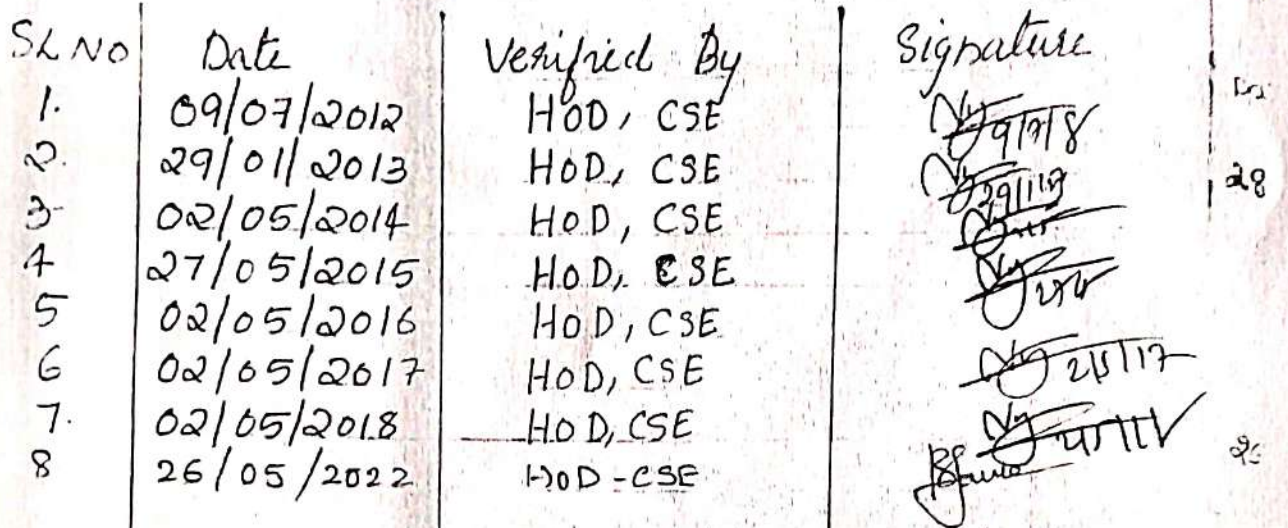 SL NO Date Verified By Signature
1. 09/07/2012 HOD, CSE
2. 29/01/2013 HOD, CSE 29/1/13
3- 02/05/2014 HOD, CSE
4 27/05/2015 HOD, CSE
5 02/05/2016 HOD, CSE
6 02/05/2017 HOD, CSE 2/5/17
7. 02/05/2018 HOD, CSE
8 26/05/2022 HOD-CSE
28